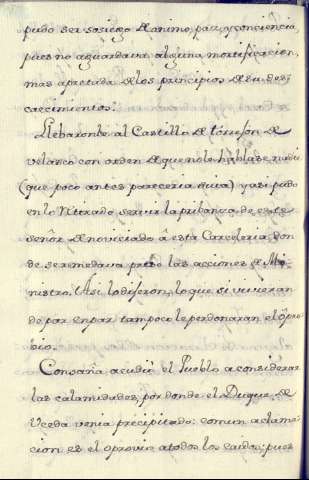 pudo ser sosiego de animo, paz, y conciencia,
pues no aguardava alguna mortificacion,
mas apretada de los principios de su des-
caecimiento.
Llebaronle al Castillo de torrejon de
velasco con orden de que no le hablase nadie
(que poco antes pareceria) y asi pudo
en lo Retirado servir la pribanza de este
señor de noviciado â esta Carceleria, don
de se remedava preso las acciones de Mi-
nistro. Asi lo dijeron, lo que si vivieran
de par en par tampoco le perdonaran el opro
bio.
Con saña acudiò el Pueblo a considerar
las calamidades, por donde el Duque de
Uceda venia precipitado: comun aclama-
cion es el oprovio a todos los caidos; pues